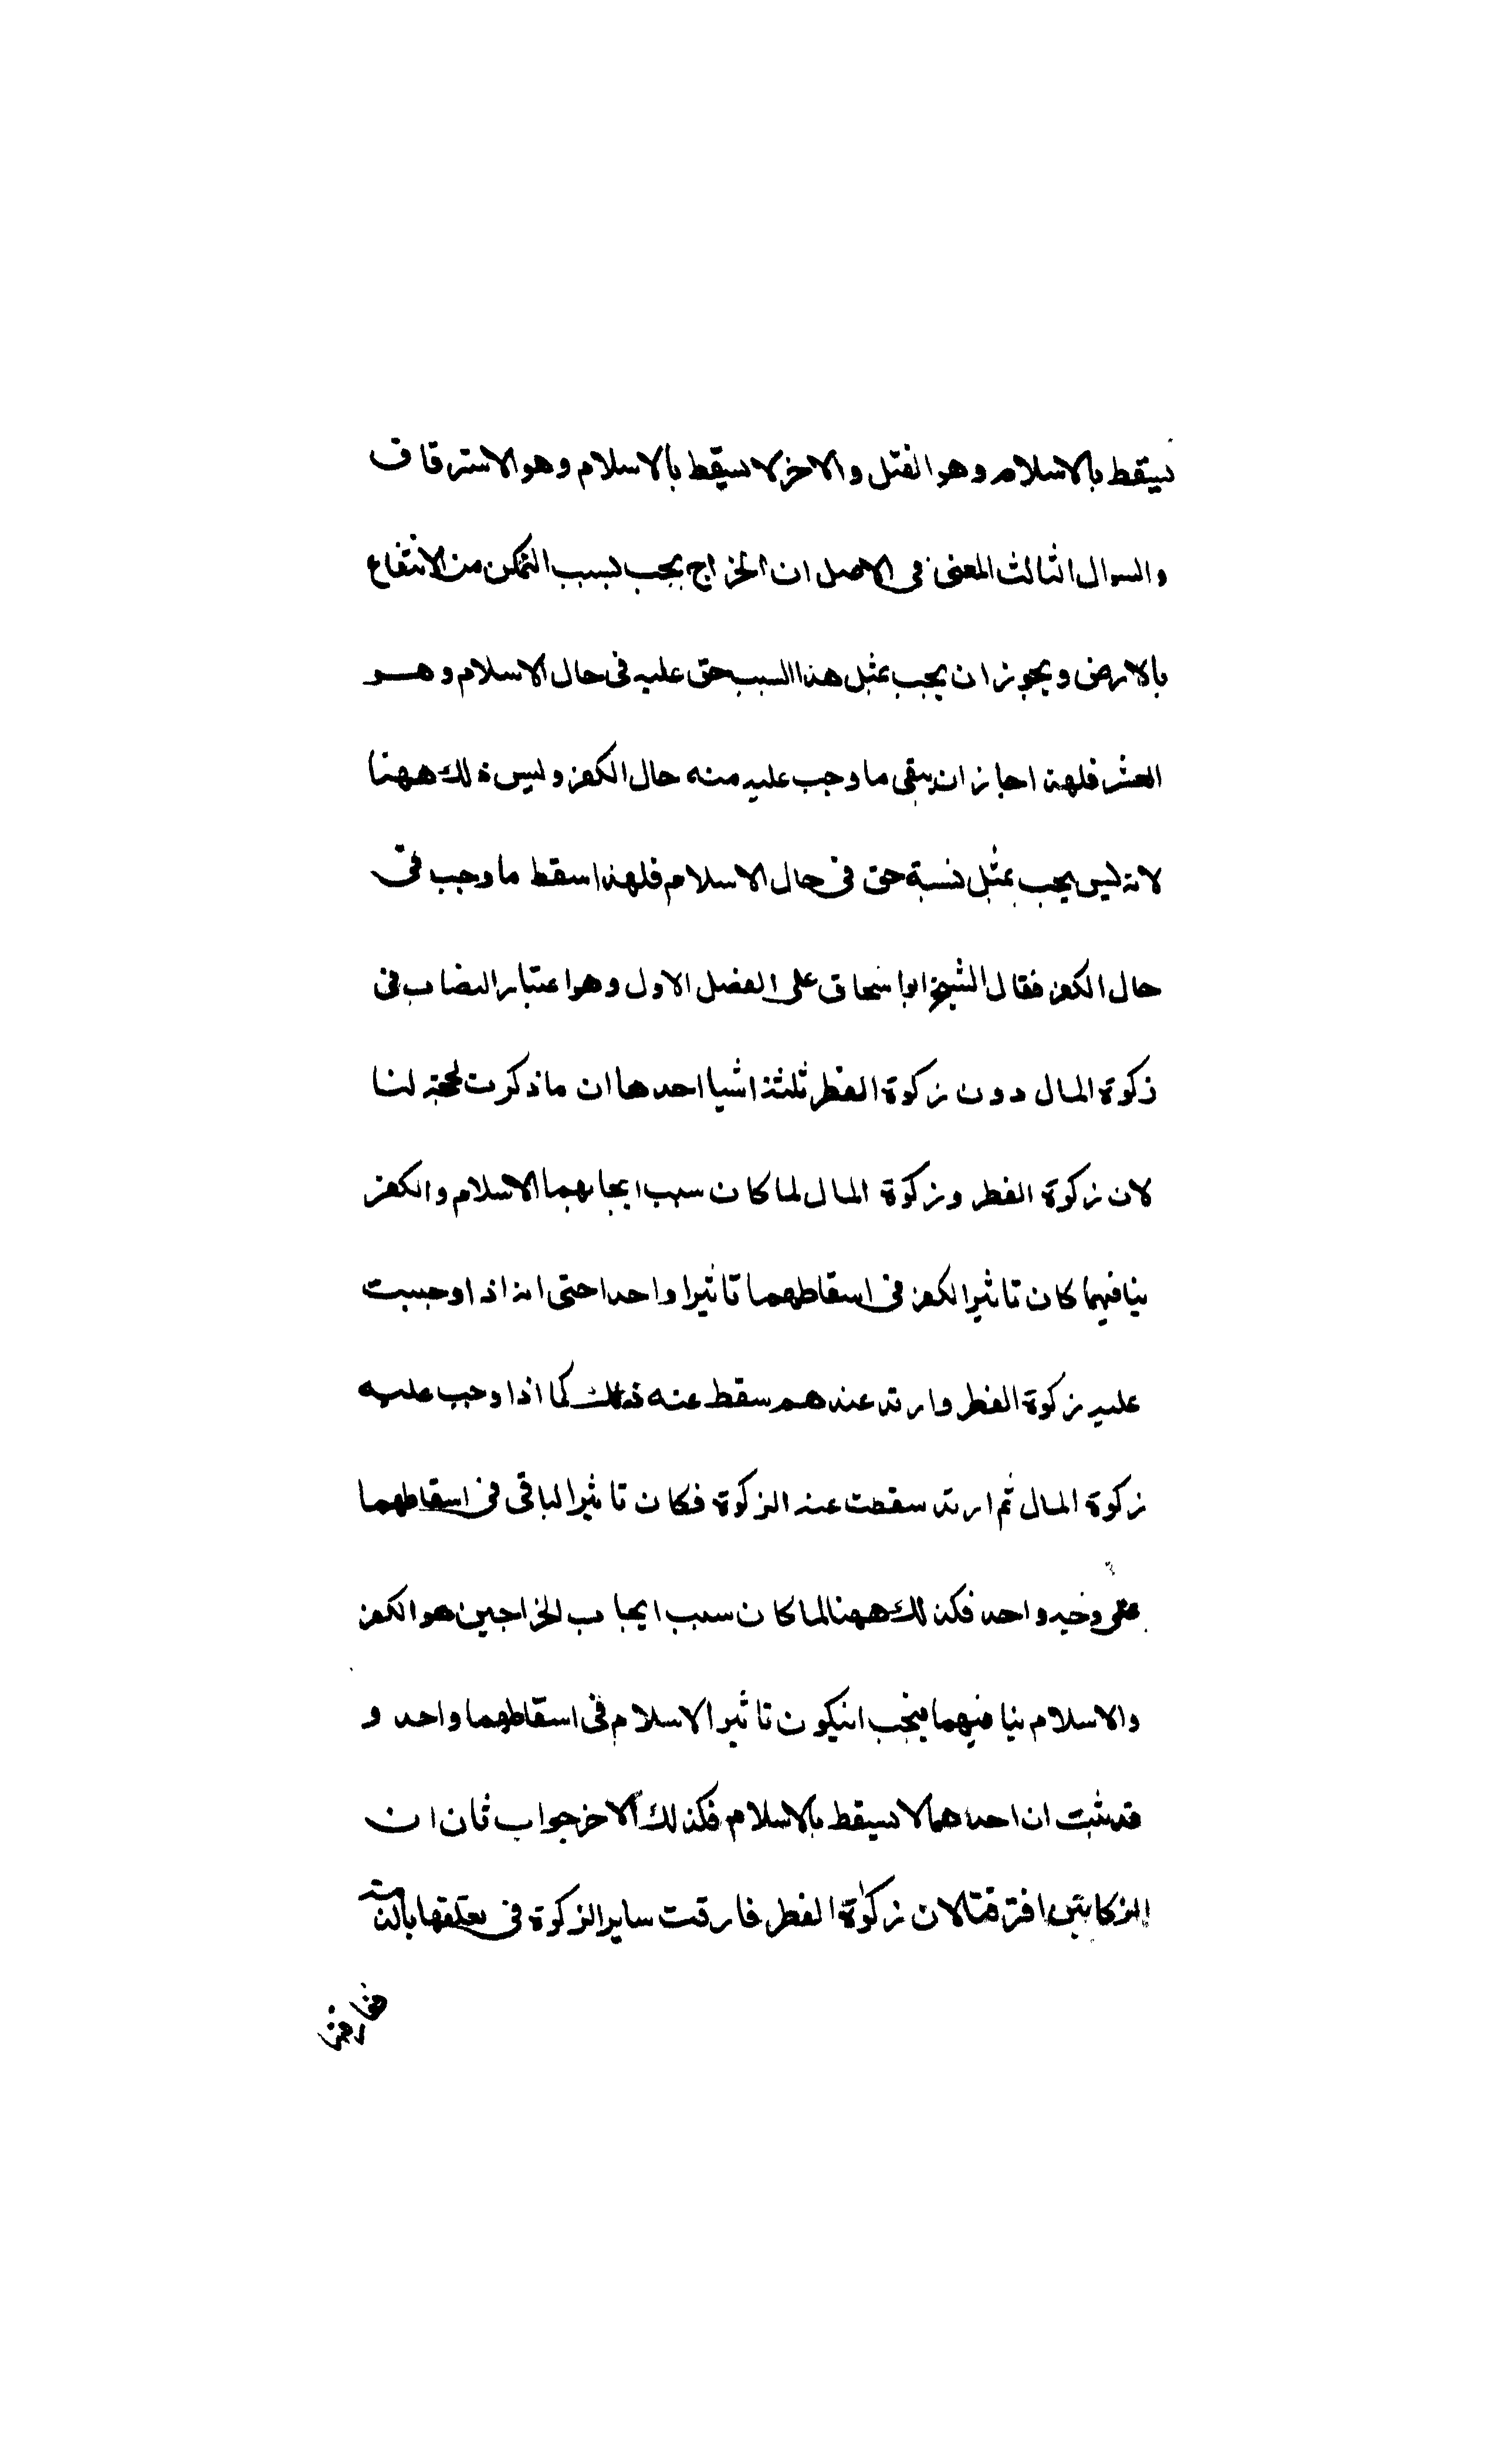 يسقط بالاسلام وهو القتل والاخر لا يسقط بالاسلام وهو الاسترقاق
والسوال الثالث المعنى في الاصل ان الخراج يجب بسبب التمكن من الانتفاع
بالارض ويجوز ان يجب بمثل هذا السبب حق عليه في حال الاسلام وهو
العشر فلهذا جاز ان يبقى ما وجب عليه منه حال الكفر وليس ذلك ههنا
لانه ليس يجب بمثل نسبة حق في حال الاسلام فلهذا سقط ما وجب في
حال الكفر فقال الشيخ ابو اسحاق على الفصل الاول وهو اعتبار النصاب في
زكوة المال دون زكوة الفطر ثلثة اشيا احدها ان ما ذكرت لحجة لنا
لان زكوة الفطر وزكوة المال لما كان سبب ايجابهما الاسلام والكفر
ينافيهما كان تاثير الكفر في اسقاطهما تاثيرا واحدا حتى انه اذا وجبت
عليه زكوة الفطر وارتد عندهم سقط عنه ذلك كما اذا وجب عليه
زكوة المال ثم ارتد سقطت عنه الزكوة فكان تاثير الباقى في اسقاطهما
على وجه واحد فكذلك ههنا لما كان سبب ايجاب الخراجين هو الكفر
والاسلام ينافيهما فيجب ان يكون تاثير الاسلام في اسقاطهما واحد و
قد ثبت ان احدهما لا يسقط بالاسلام فكذلك الاخر جواب ثان ان
الزكاتين افترقتا لان زكوة الفطر فارقت ساير الزكوة في تعلقها بالذمة